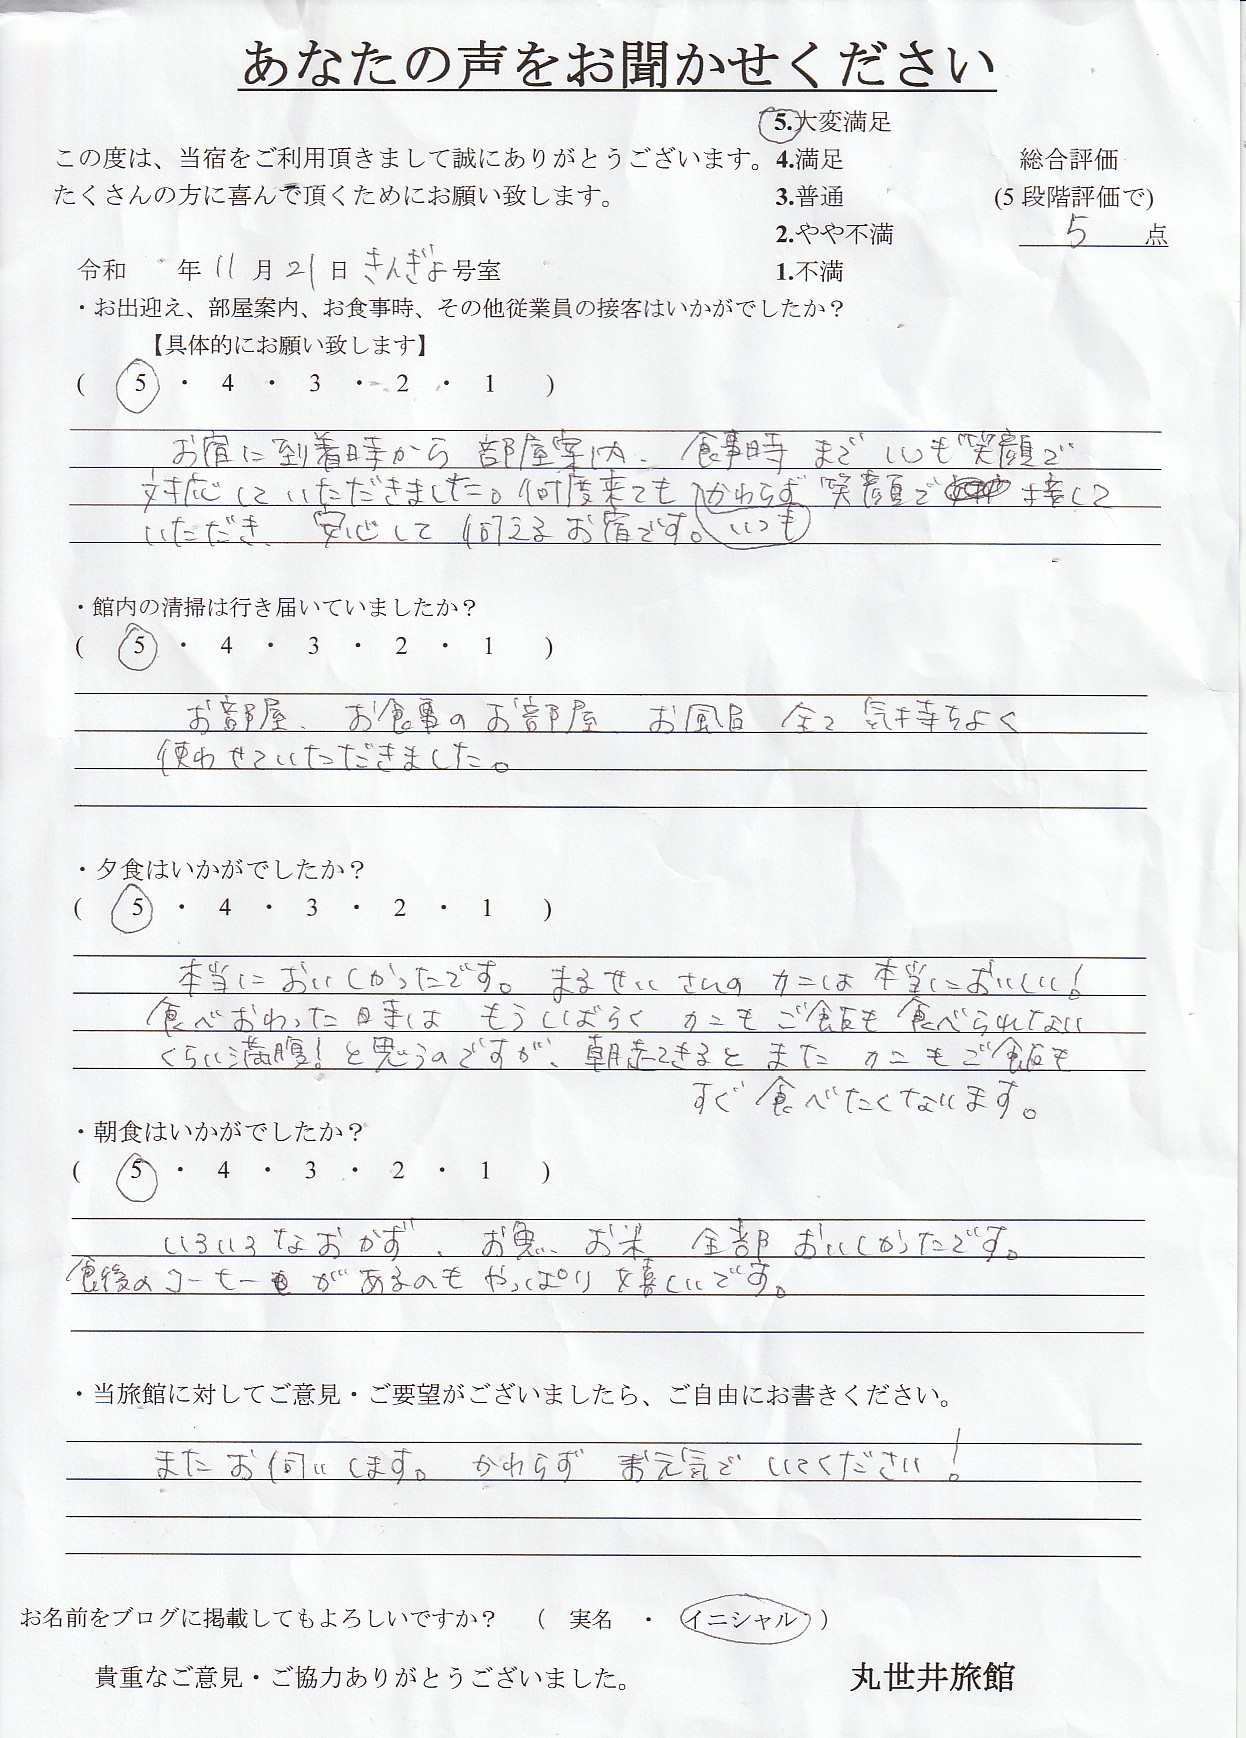 あなたの声をお聞かせください
5.大変満足
この度は、当宿をご利用頂きまして誠にありがとうございます。4.満足 総合評価
たくさんの方に喜んで頂くためにお願い致します。 3.普通 (5段階評価で)
2.やや不満 5 点
令和 年 11 月 21 日 きんぎょ号室 1.不満
・お出迎え、部屋案内、お食事時、その他従業員の接客はいかがでしたか?
【具体的にお願い致します】
( 5 ・ 4 ・ 3 ・ 2 ・ 1 )
お宿に到着時から 部屋案内、食事時まで いつも笑顔で
対応していただきました。何度来ても かわらず 笑顔で 接して
いただき、安心して 伺えるお宿です。いつも
・館内の清掃は行き届いていましたか?
( 5 ・ 4 ・ 3 ・ 2 ・ 1 )
お部屋、お食事のお部屋 お風呂 全て 気持ちよく
使わせていただきました。
・夕食はいかがでしたか?
( 5 ・ 4 ・ 3 ・ 2 ・ 1 )
本当に おいしかったです。まるせい さんの カニは 本当においしい!
食べおわった時は もうしばらく カニもご飯も 食べられない
くらい満腹!と思うのですが、朝起きると また カニもご飯も
すぐ 食べたくなります。
・朝食はいかがでしたか?
( 5 ・ 4 ・ 3 ・ 2 ・ 1 )
いろいろなおかず、お魚、お米 全部 おいしかったです。
食後のコーヒーがあるのも やっぱり 嬉しいです。
・当旅館に対してご意見・ご要望がございましたら、ご自由にお書きください。
またお伺いします。かわらず お元気で いてください!
お名前をブログに掲載してもよろしいですか? ( 実名 ・ イニシャル )
貴重なご意見・ご協力ありがとうございました。 丸世井旅館